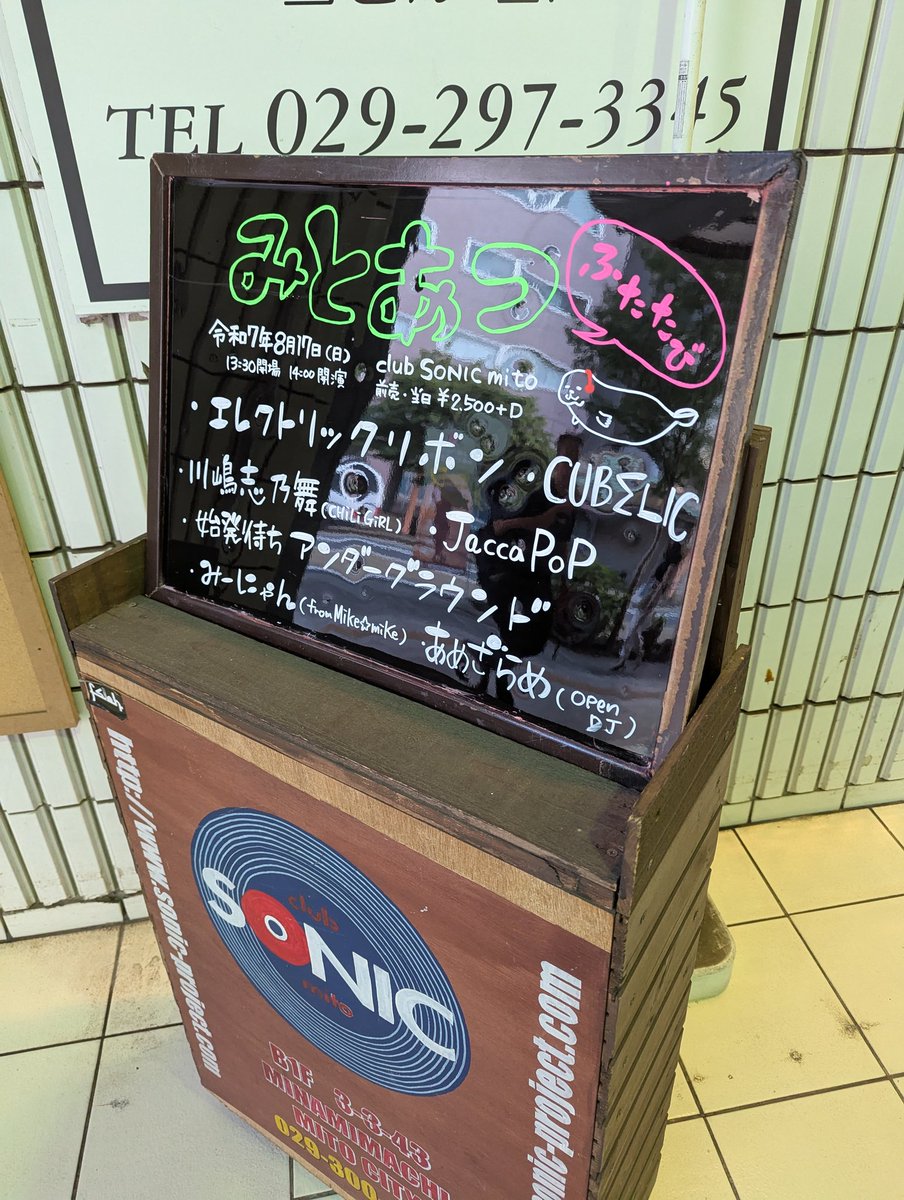 TEL 029-297-3345
みとあつ
ふたたび
令和7年8月17日(日) club SONIC mito
13:30開場 14:00開演 前売・当日 ¥2,500+D
・エレクトリックリボン ・CUBΣLIC
・川嶋志乃舞(CHiLi GiRL) ・JaccaPoP
・始発待ちアンダーグラウンド
・みーにゃん(from Mike☆mike) ・あめざらめ(open DJ)
http://www.sonic-project.com
club
SONIC
mito
B1F 3-3-43
MINAMIMACHI
MITO CITY
029-300
sonic-project.com